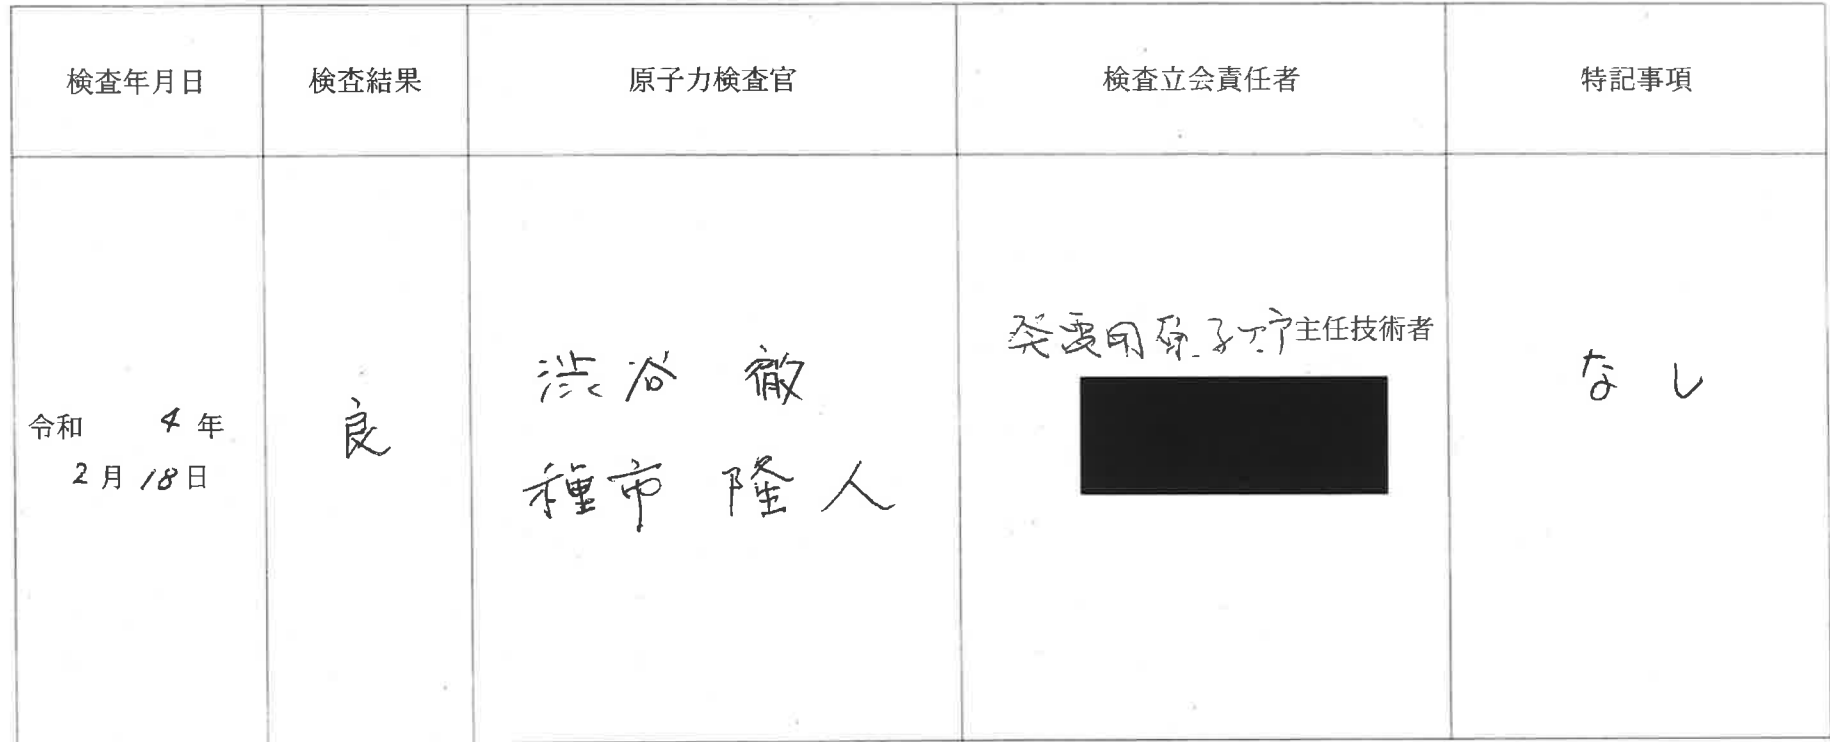 検査年月日
検査結果
原子力検査官
検査立会責任者
特記事項
令和 4 年
2 月 18 日
良
渋谷 徹
種市 隆人
発電用原子炉主任技術者
なし